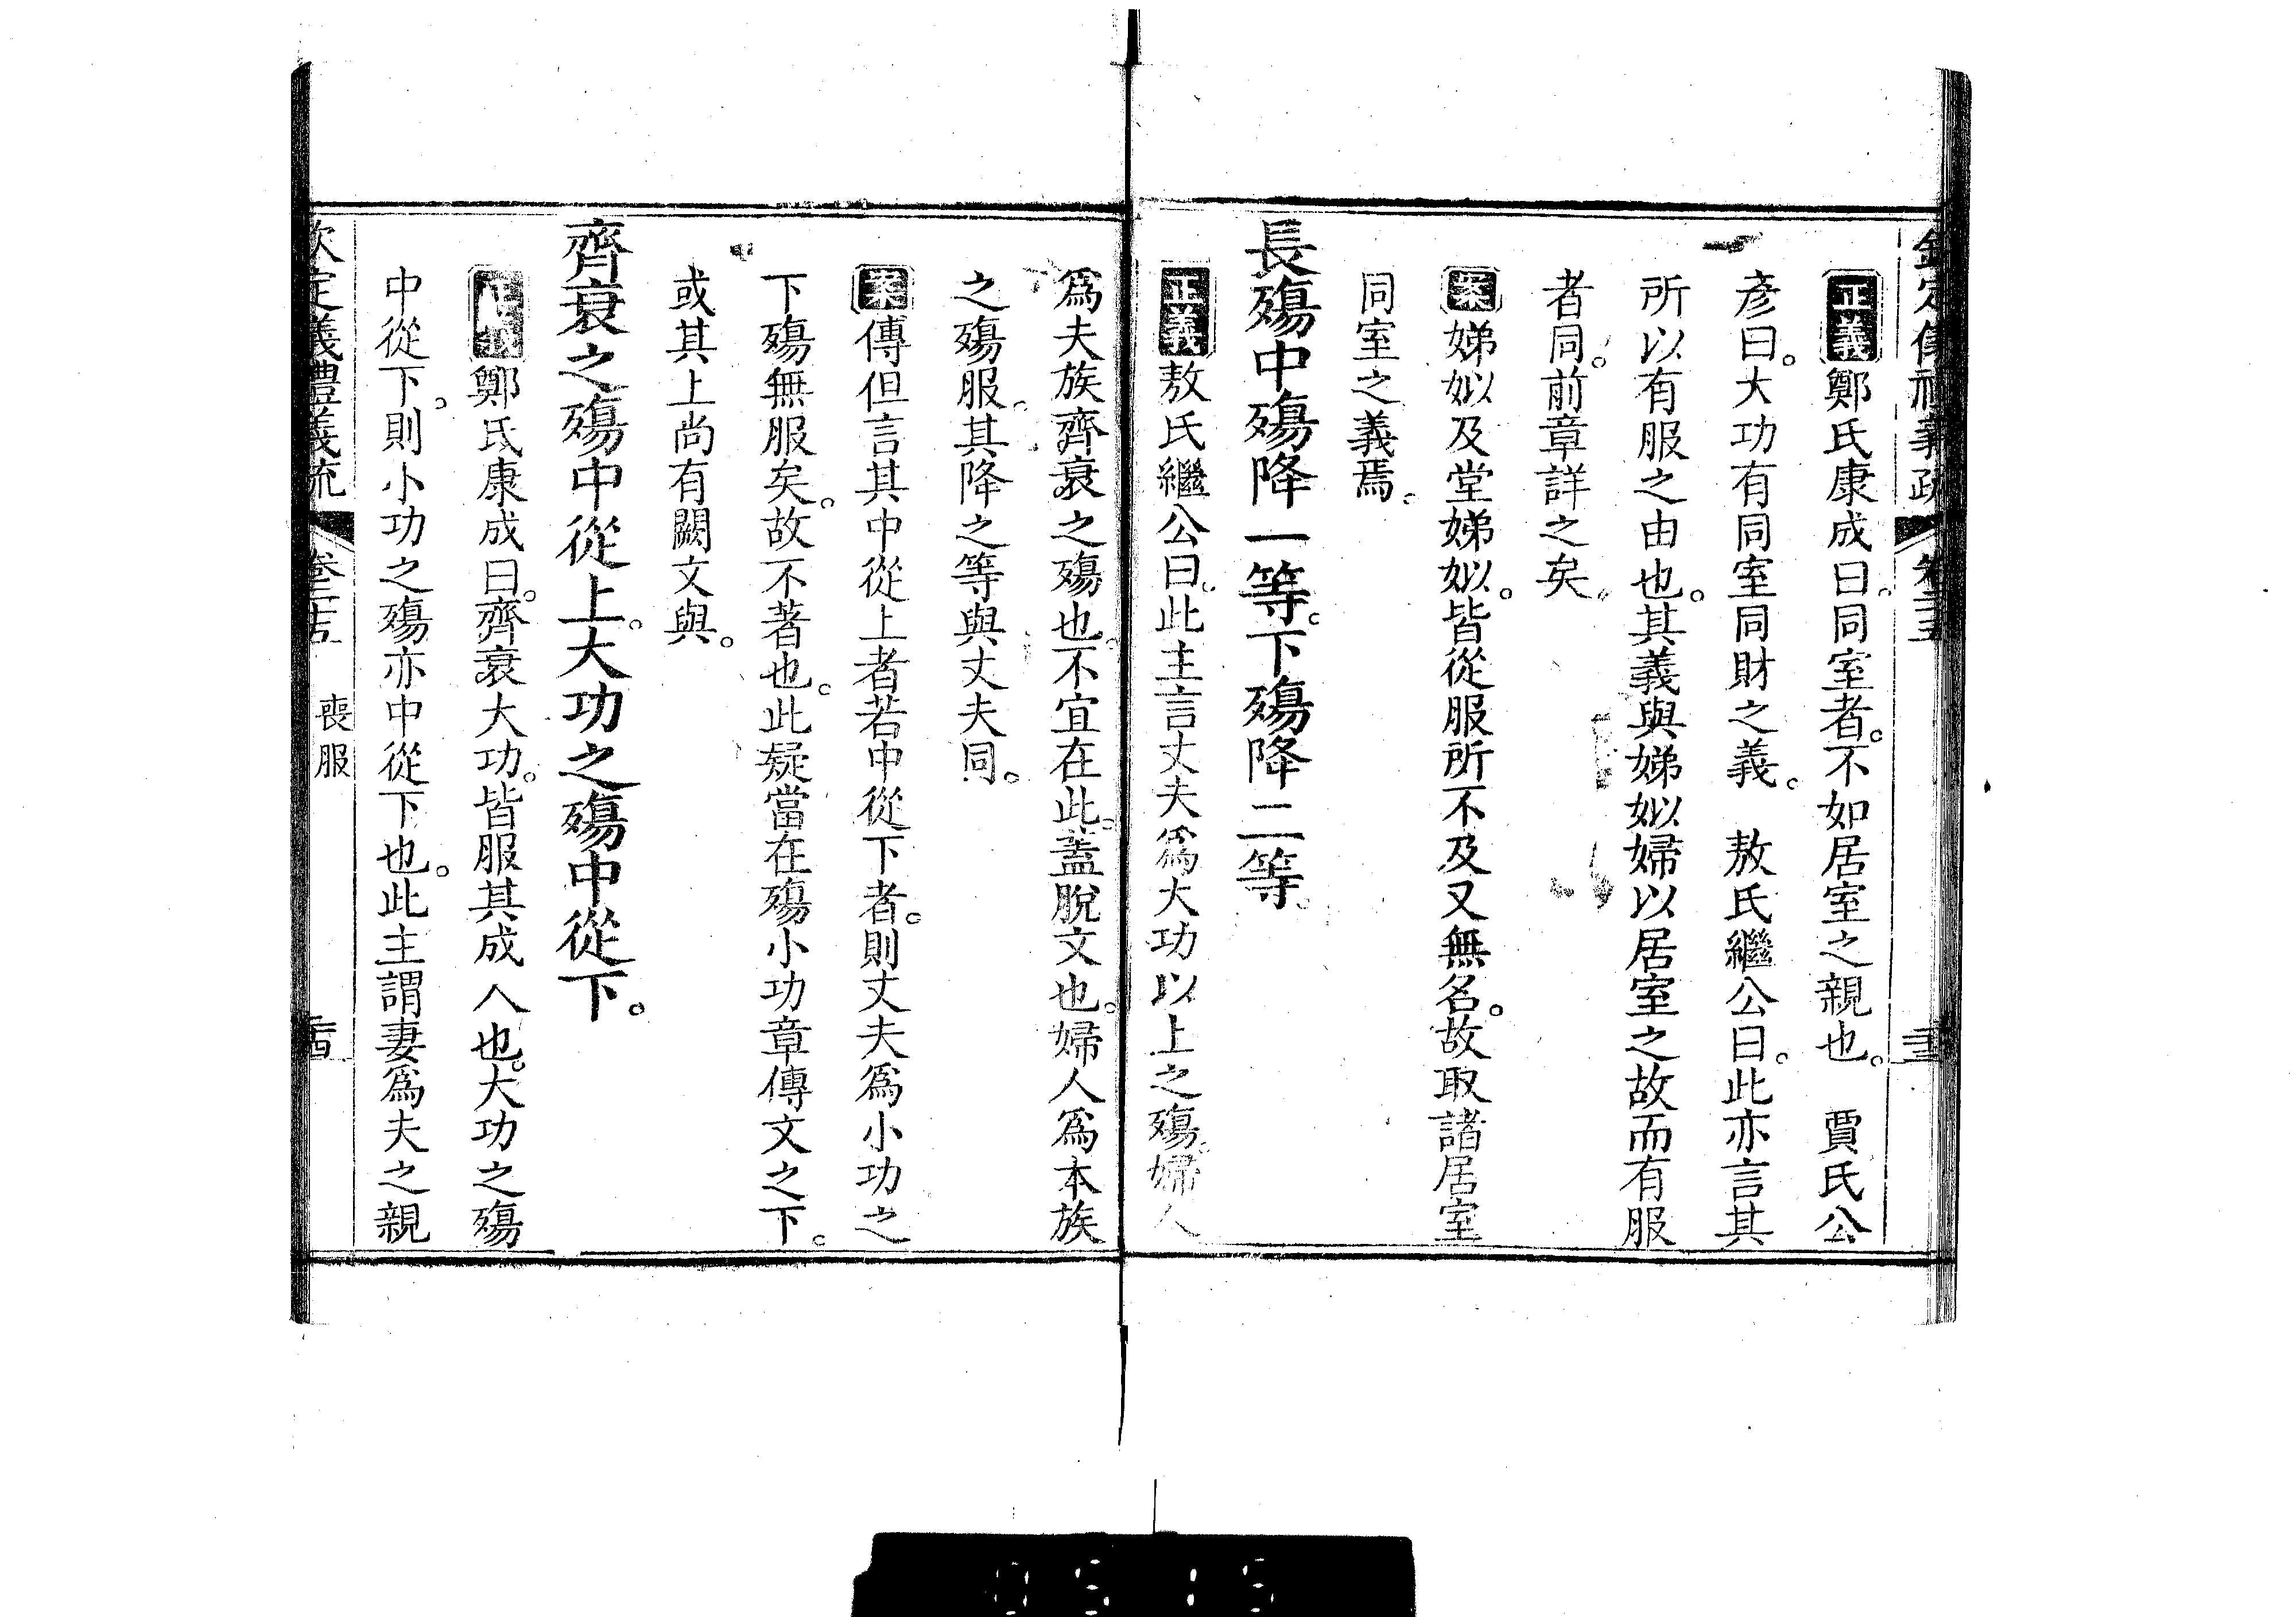 正義鄭氏康成曰。同室者。不如居室之親也。　賈氏公
彦曰。大功有同室同財之義。　敖氏繼公曰。此亦言其
所以有服之由也。其義與娣姒婦以居室之故而有服
者同。前章詳之矣。
案娣姒及堂娣姒。皆從服所不及又無名。故取諸居室
同室之義焉。
長殤中殤降一等。下殤降二等。
正義敖氏繼公曰。此主言丈夫爲大功以上之殤。婦人
爲夫族齊衰之殤也。不宜在此。蓋脫文也。婦人爲本族
之殤服。其降之等與丈夫同。
案傳但言其中從上者若中從下者。則丈夫爲小功之
下殤無服矣。故不著也。此疑當在殤小功章傳文之下。
或其上尚有闕文與。
齊衰之殤中從上。大功之殤中從下。
正義鄭氏康成曰。齊衰大功。皆服其成人也。大功之殤
中從下。則小功之殤亦中從下也。此主謂妻爲夫之親
欽定義禮義疏
喪服